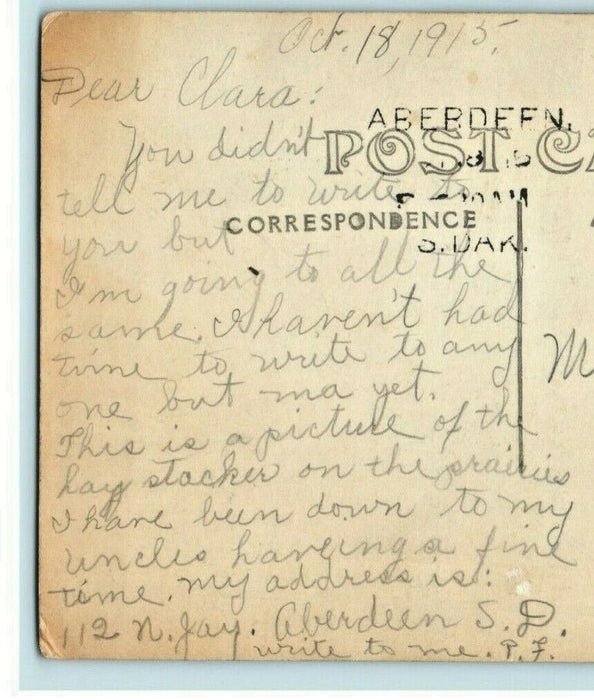 Oct. 18, 1915.
Dear Clara:
ABERDEEN,
You didn't
POST CA
tell me to write to
CORRESPONDENCE
you but
S. DAK.
I'm going to all the
same. I haven't had
time to write to any
one but ma yet.
This is a picture of the
hay stacker on the prairies
I have been down to my
uncles haveing a fine
time. my address is:
112 N. Jay. Aberdeen S. D.
write to me. P. F.
M